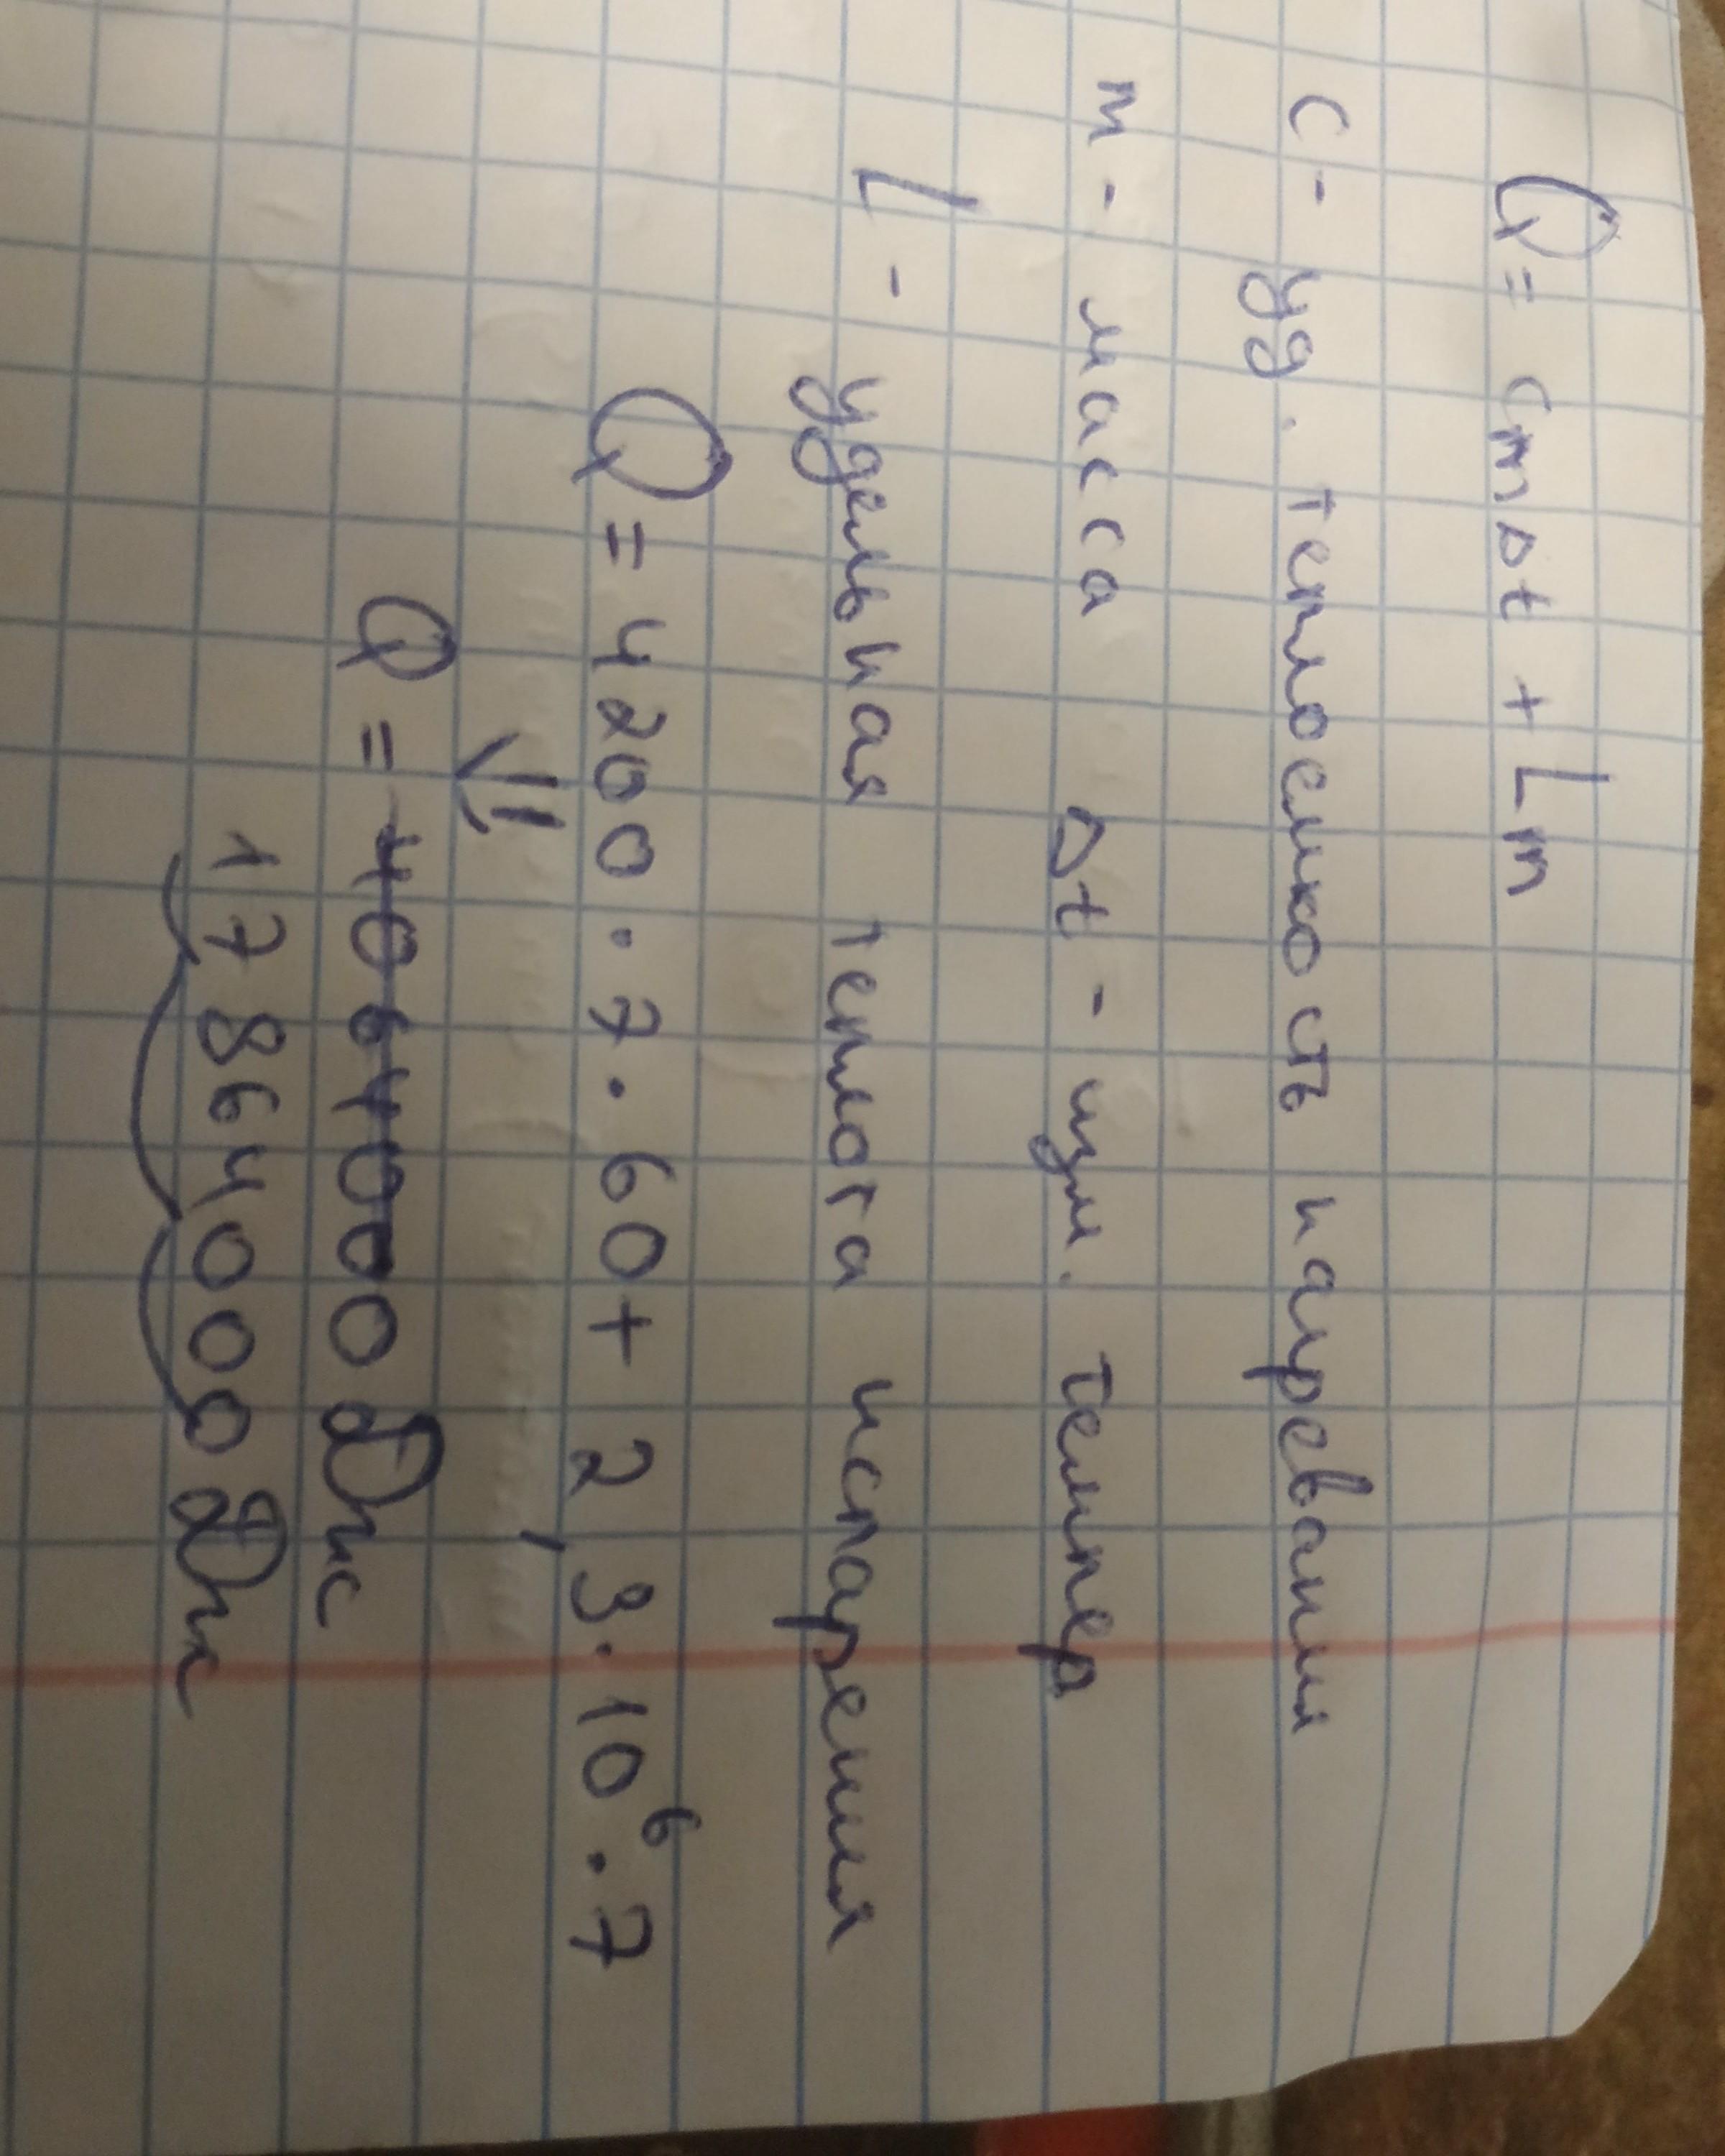 Q = cmΔt + Lm
c - уд. теплоемкость нагревания
m - масса Δt - изм. темпер
L - удельная теплота испарения
Q = 4200 · 7 · 60 + 2,3 · 10⁶ · 7
⇓
Q = 4064000 Дж
17864000 Дж